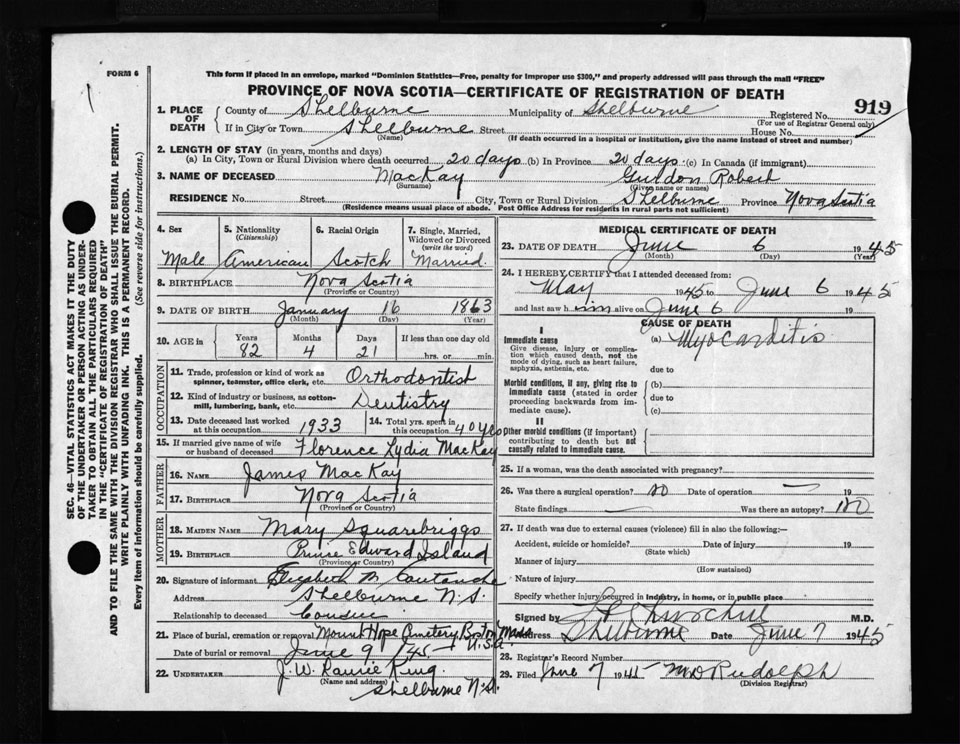 FORM 6
This form if placed in an envelope, marked "Dominion Statistics—Free, penalty for improper use $300," and properly addressed will pass through the mail "FREE"
PROVINCE OF NOVA SCOTIA—CERTIFICATE OF REGISTRATION OF DEATH
919
1. PLACE OF DEATH
County of Shelburne Municipality of Shelburne Registered No.
(For use of Registrar General only)
If in City or Town Shelburne Street House No.
(Name) (If death occurred in a hospital or institution, give the name instead of street and number)
2. LENGTH OF STAY (in years, months and days)
(a) In City, Town or Rural Division where death occurred 20 days (b) In Province 20 days (c) In Canada (if immigrant)
3. NAME OF DECEASED MacKay Gurdon Robert
(Surname) (Given name or names)
RESIDENCE No. Street City, Town or Rural Division Shelburne Province Nova Scotia
(Residence means usual place of abode. Post Office Address for residents in rural parts not sufficient)
4. Sex
Male
5. Nationality
(Citizenship)
American
6. Racial Origin
Scotch
7. Single, Married, Widowed or Divorced
(write the word)
Married.
8. BIRTHPLACE Nova Scotia
(Province or Country)
9. DATE OF BIRTH January 16 1863
(Month) (Day) (Year)
10. AGE in
Years Months Days If less than one day
82 4 21 hrs. or min.
OCCUPATION
11. Trade, profession or kind of work as spinner, teamster, office clerk, etc. Orthodontist
12. Kind of industry or business, as cotton-mill, lumbering, bank, etc. Dentistry
13. Date deceased last worked at this occupation 1933
14. Total yrs. spent in this occupation 40 yrs
15. If married give name of wife or husband of deceased Florence Lydia MacKay
FATHER
16. NAME James MacKay
17. BIRTHPLACE Nova Scotia
(Province or Country)
MOTHER
18. MAIDEN NAME Mary Squarebriggs
19. BIRTHPLACE Prince Edward Island
(Province or Country)
20. Signature of informant Elizabeth M.
Address Shelburne N.S.
Relationship to deceased
21. Place of burial, cremation or removal Mount Hope Cemetery Boston Mass U.S.A.
Date of burial or removal June 9 1945
22. UNDERTAKER J.W. Laurie King.
(Name and address)
Shelburne N.S.
MEDICAL CERTIFICATE OF DEATH
23. DATE OF DEATH June 6 1945
(Month) (Day) (Year)
24. I HEREBY CERTIFY that I attended deceased from:
May 1945 to June 6 1945
and last saw him alive on June 6 19
CAUSE OF DEATH
I
Immediate cause
Give disease, injury or complication which caused death, not the mode of dying, such as heart failure, asphyxia, asthenia, etc.
(a) Myocarditis
due to
Morbid conditions, if any, giving rise to immediate cause (stated in order proceeding backwards from immediate cause).
(b)
due to
(c)
II
Other morbid conditions (if important) contributing to death but not causally related to immediate cause.
25. If a woman, was the death associated with pregnancy?
26. Was there a surgical operation? no Date of operation — 19
State findings — Was there an autopsy? no
27. If death was due to external causes (violence) fill in also the following:—
Accident, suicide or homicide? Date of injury 19
(State which)
Manner of injury
(How sustained)
Nature of injury
Specify whether injury occurred in industry, in home, or in public place
Signed by M.D.
Address Shelburne Date June 7 1945
28. Registrar's Record Number
29. Filed June 7 1945 Rudolph
(Division Registrar)
SEC. 46—VITAL STATISTICS ACT MAKES IT THE DUTY
OF THE UNDERTAKER OR PERSON ACTING AS UNDERTAKER TO OBTAIN ALL THE PARTICULARS REQUIRED
IN THE "CERTIFICATE OF REGISTRATION OF DEATH"
AND TO FILE THE SAME WITH THE DIVISION REGISTRAR WHO SHALL ISSUE THE BURIAL PERMIT.
WRITE PLAINLY WITH UNFADING INK. THIS IS A PERMANENT RECORD.
Every item of information should be carefully supplied. (See reverse side for instructions.)